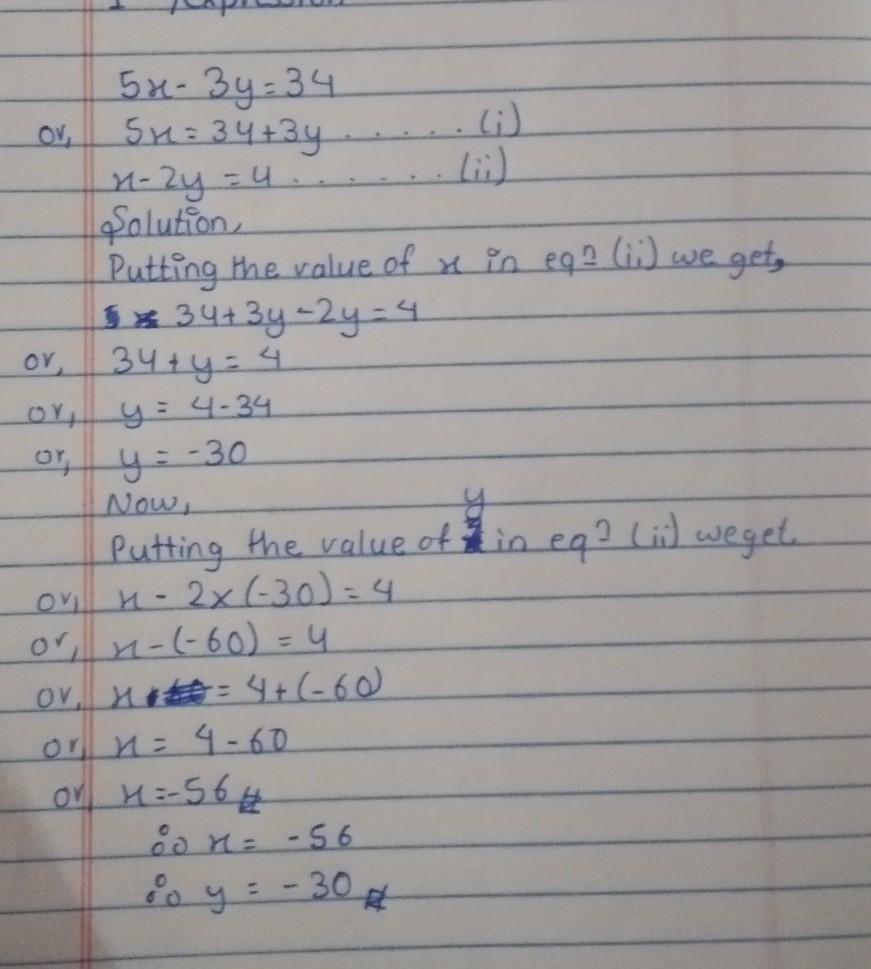 5x - 3y = 34
or, 5x = 34 + 3y ....... (i)
x - 2y = 4 ....... (ii)
Solution,
Putting the value of x in eqn (ii) we get,
34 + 3y - 2y = 4
or, 34 + y = 4
or, y = 4 - 34
or, y = -30
Now,
Putting the value of y in eqn (ii) we get.
or, x - 2x(-30) = 4
or, x - (-60) = 4
or, x = 4 + (-60)
or, x = 4 - 60
or x = -56
∴ x = -56
∴ y = -30